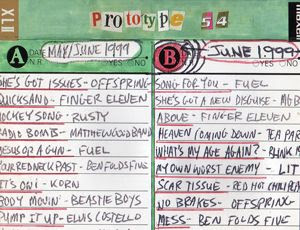 XLII
Prototype 54
A DATE MAY/JUNE 1999
N.R. YES NO
SHE'S GOT ISSUES - OFFSPRING
QUICKSAND - FINGER ELEVEN
HOCKEY SONG - RUSTY
RADIO BOMBS - MATTHEW GOOD BAND
JESUS OR A GUN - FUEL
YOUR REDNECK PAST - BEN FOLDS FIVE
IT'S ON! - KORN
BODY MOVIN' - BEASTIE BOYS
PUMP IT UP - ELVIS COSTELLO
B JUNE 1999
YES NO
SONG FOR YOU - FUEL
SHE'S GOT A NEW DISGUISE - MGB
ABOVE - FINGER ELEVEN
HEAVEN COMING DOWN - TEA PAR
WHAT'S MY AGE AGAIN? - BLINK
MY OWN WORST ENEMY - LIT
SCAR TISSUE - RED HOT CHILI PE
NO BRAKES - OFFSPRING
MESS - BEN FOLDS FIVE